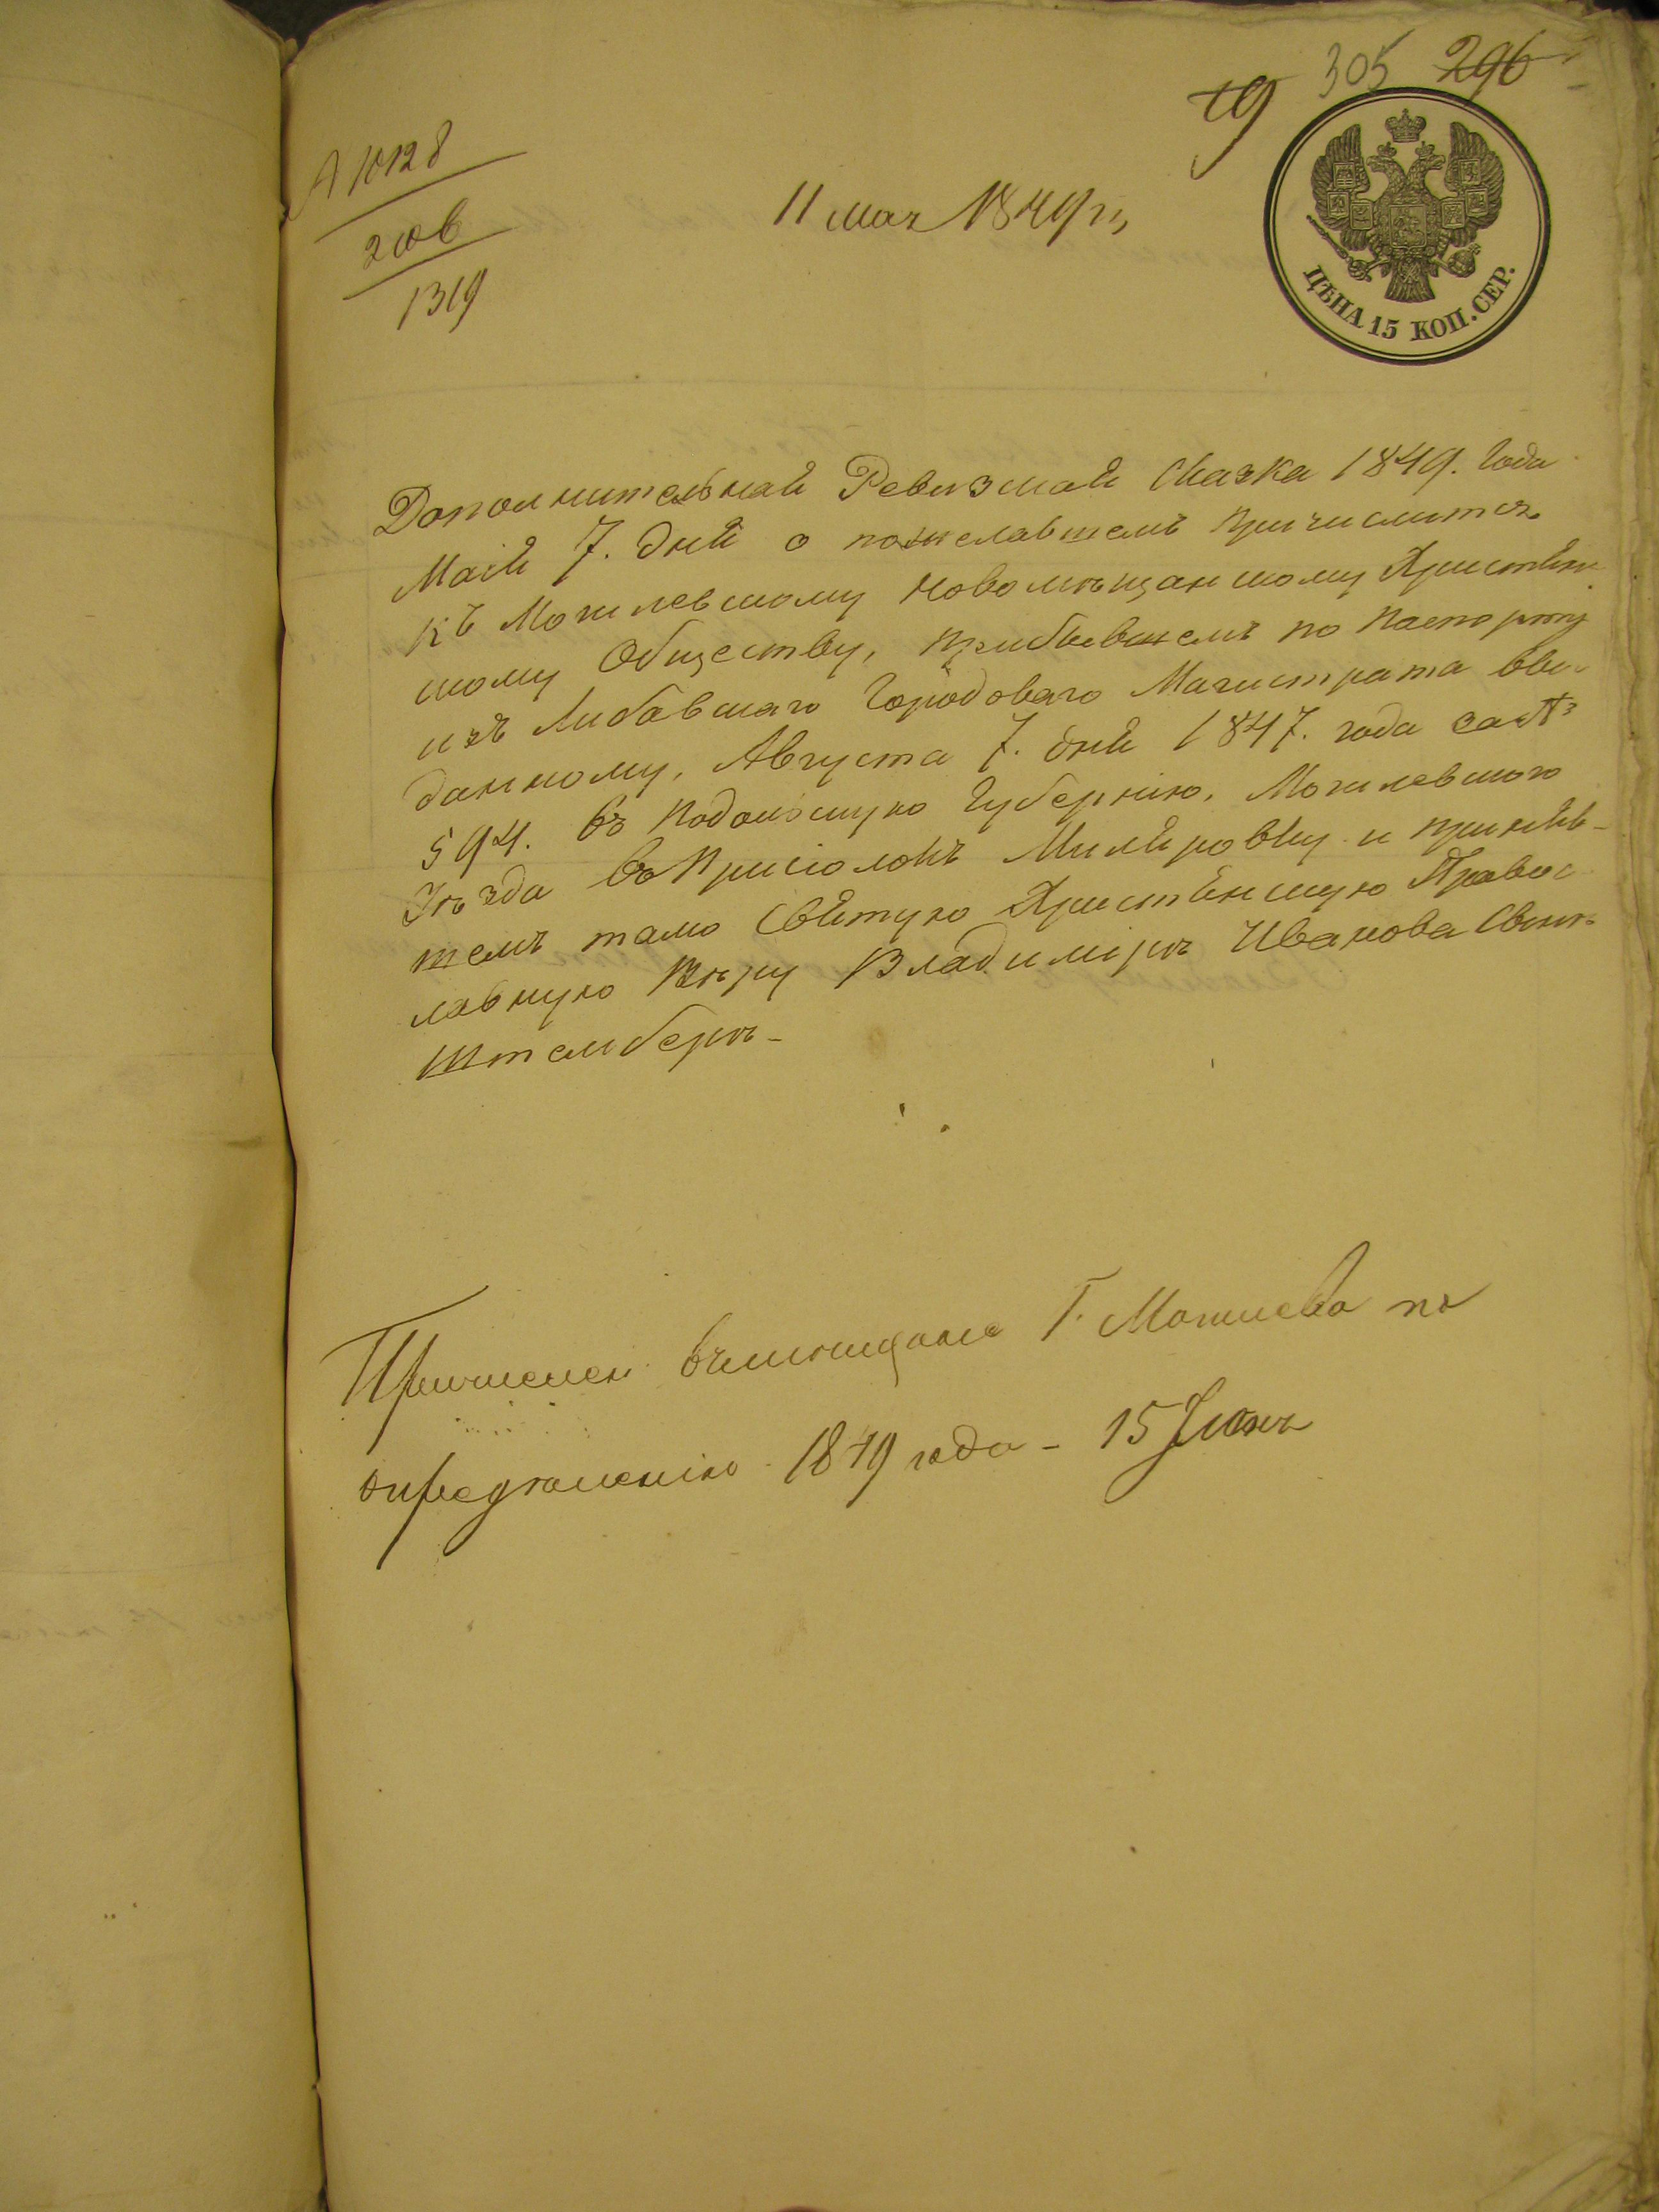 305 296
19
А 10128
206
1319
11 мая 1849 г.
ЦѢНА 15 КОП. СЕР.
Дополнительная Ревизская Сказка 1849. Года
Маія 7. дня о пожелавшемъ причислится
къ Могилевскому Новомѣщанскому Християн
скому Обществу, прибывшемъ по паспорту
изъ Либавскаго Городоваго Магистрата вы-
данному, Августа 7. дня 1847. года за №
594. въ Подольскую Губернію, Могилевского
Уѣзда въ
темъ тамо Святую Християнскую Правос
лавную Вѣру Владимиръ Иванова
Штемберъ-
Причислен вмѣщане Г. Могилева по
опредѣленію 1849 года - 15 Июня